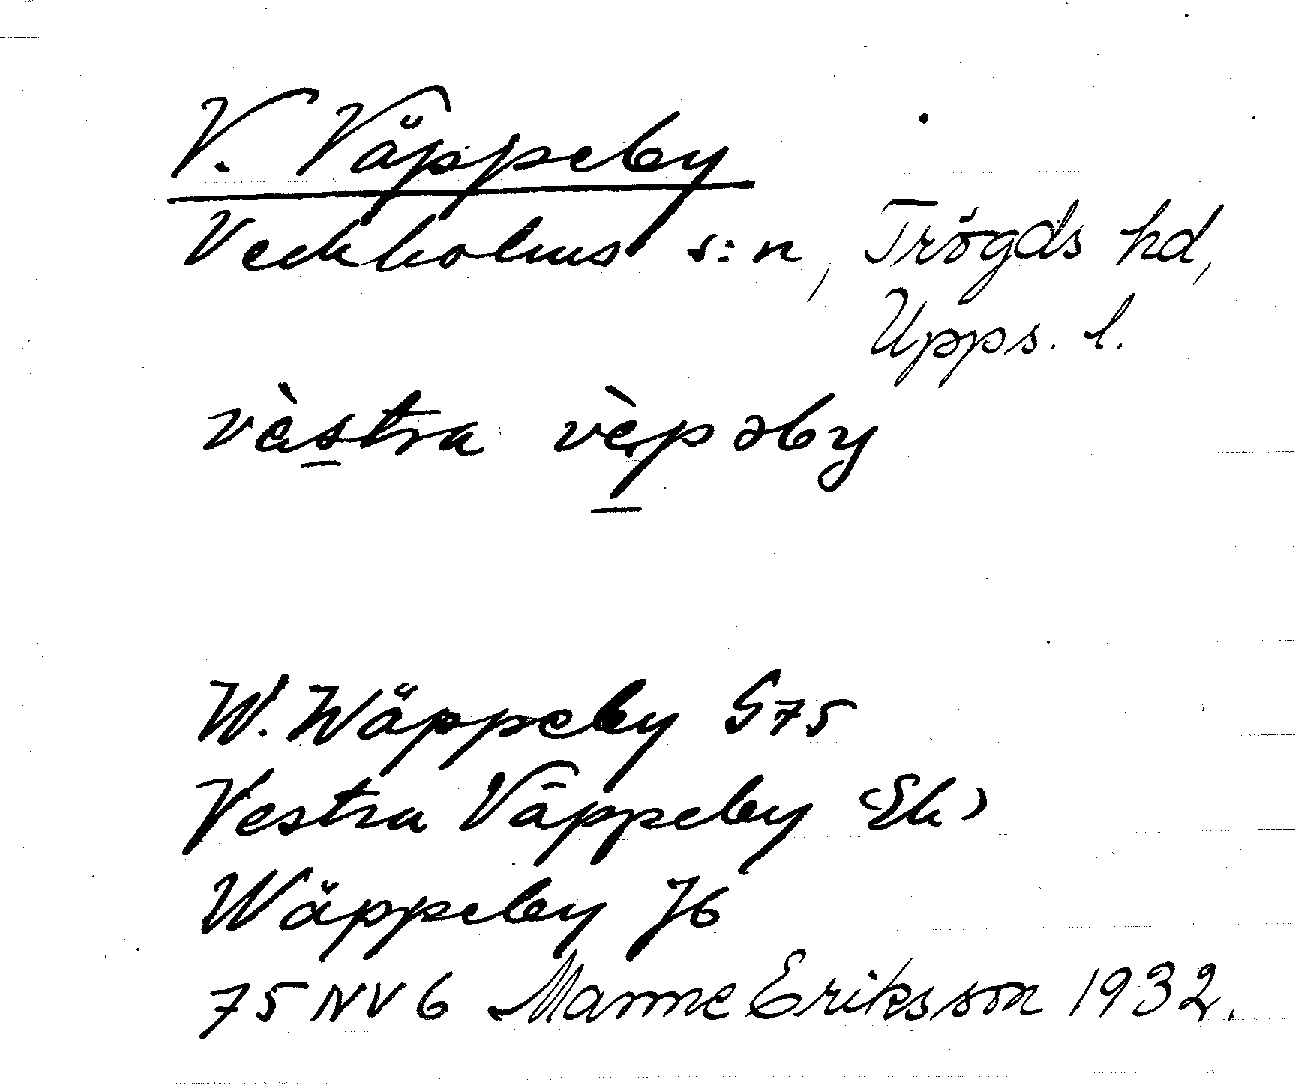 V. Väppeby
Veckholms s:n, Trögds hd,
Upps. l.
vèstra vèpəby
W. Wäppeby S75
Vestra Väppeby (Ek)
Wäppeby J6
75 NV 6 Manne Eriksson 1932.